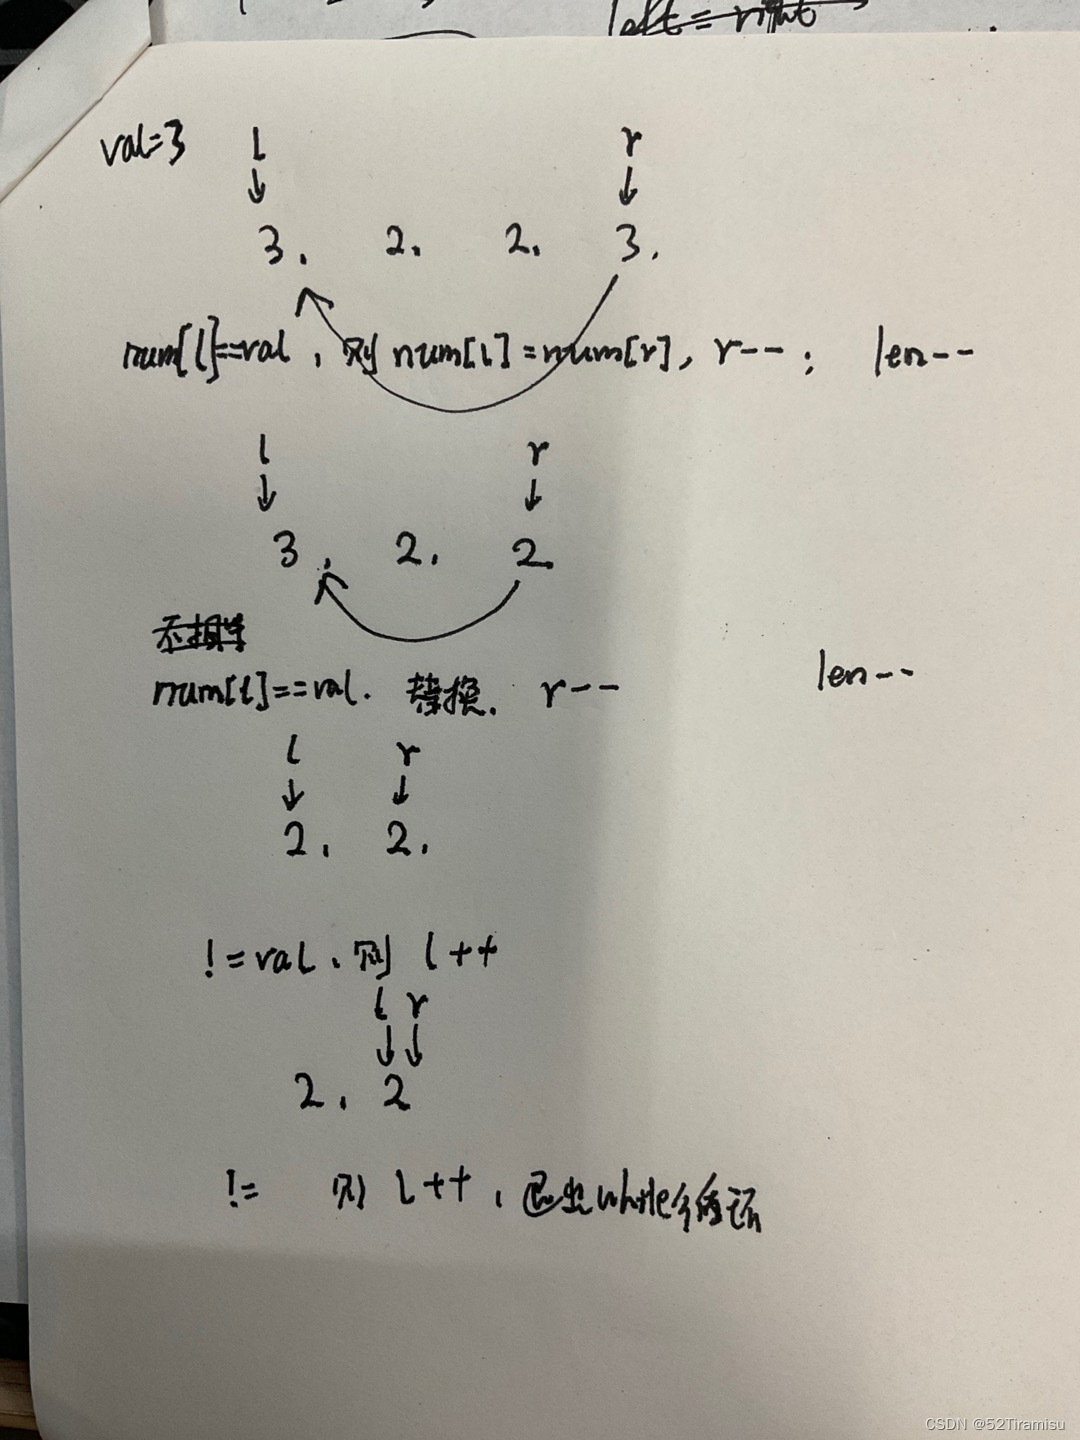 left = right
val=3 l r
3. 2. 2. 3.
num[l]==val , 则 num[l]=num[r], r-- ; len--
l r
3. 2. 2.
num[l]==val. 替换. r-- len--
l r
2. 2.
!=val. 则 l++
l r
2. 2
!= 则 l++, 退出while循环
CSDN @52Tiramisu